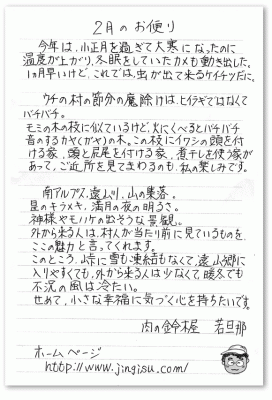 2月のお便り
今年は、小正月を過ぎて大寒になったのに
温度が上がり、冬眠をしていたカメも動き出した。
1ヵ月早いけど、これでは、虫が出て来るケイチツだに。
ウチの村の節分の魔除けは、ヒイラギではなくて
バチバチ。
モミの木の枝に似ているけど、火にくべるとバチバチ
音のするカヤ(がや)の木。この枝にイワシの頭を付
ける家、頭と尻尾を付ける家、煮干しを使う家が
あって、ご近所を見てまわるのも、私の楽しみです。
南アルプス、遠山郷、山の集落。
星のキラメキ、満月の夜の明るさ。
神様やモノノケの出そうな景観。
外から来る人は、村人が当たり前に見ているものを
ここの魅力と言ってくれます。
このところ、峠に雪も凍結もなくて、遠山郷に
入りやすくても、外から来る人は少なくて暖冬でも
不況の風は冷たい。
せめて、小さな幸福に気づく心を持ちたいです。
肉の鈴木屋 若旦那
ホームページ
http://www.jingisu.com/